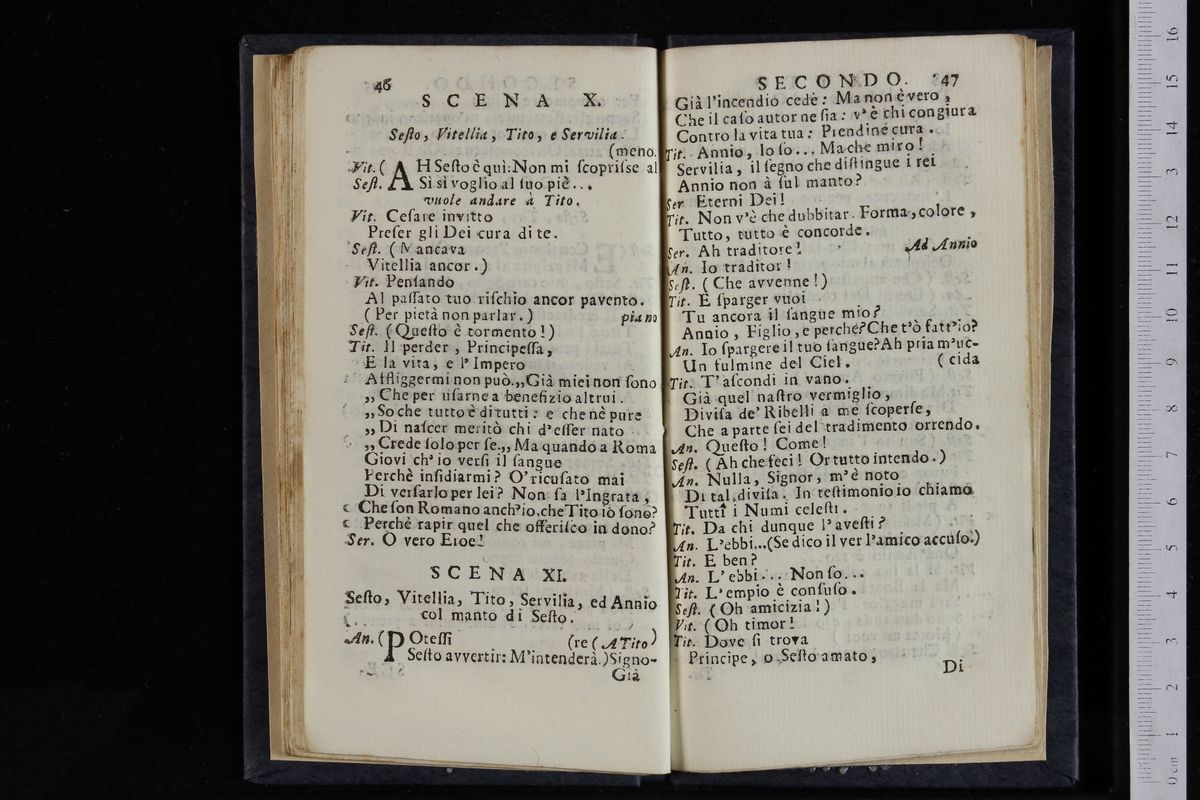 46
SCENA X.
Sesto, Vitellia, Tito, e Servilia.
(meno.
Vit. ( AH Sesto è quì: Non mi scoprisse al
Sest. Sì sì voglio al suo piè...
vuole andare à Tito.
Vit. Cesare invitto
Preser gli Dei cura di te.
Sest. ( Mancava
Vitellia ancor. )
Vit. Pensando
Al passato tuo rischio ancor pavento.
( Per pietà non parlar. ) piano
Sest. ( Questo è tormento! )
Tit. Il perder, Principessa,
E la vita, e l'Impero
Affliggermi non può. „Già miei non sono
„ Che per usarne a benefizio altrui.
„ So che tutto è di tutti: e che nè pure
„ Di nascer meritò chi d'esser nato
„ Crede solo per se.„ Ma quando a Roma
Giovi ch'io versi il sangue
Perchè insidiarmi? O' ricusato mai
Di versarlo per lei? Non sa l'Ingrata,
Che son Romano anch'io, che Tito io sono?
Perchè rapir quel che offerisco in dono?
Ser. O vero Eroe!
SCENA XI.
Sesto, Vitellia, Tito, Servilia, ed Annio
col manto di Sesto.
An. ( POtessi (re ( A Tito )
Sesto avvertir: M'intenderà.) Signo-
Già
SECONDO. 47
Già l'incendio cedè: Ma non è vero,
Che il caso autor ne sia: v'è chi congiura
Contro la vita tua: Prendine cura.
Tit. Annio, lo so... Ma che miro!
Servilia, il segno che distingue i rei
Annio non à sul manto?
Ser Eterni Dei!
Tit. Non v'è che dubbitar. Forma, colore,
Tutto, tutto è concorde.
Ser. Ah traditore! Ad Annio
An. Io traditor!
Sest. ( Che avvenne! )
Tit. E sparger vuoi
Tu ancora il sangue mio?
Annio, Figlio, e perchè? Che t'ò fatt'io?
An. Io spargere il tuo sangue? Ah pria m'uc-
Un fulmine del Ciel. ( cida
Tit. T'ascondi in vano.
Già quel nastro vermiglio,
Divisa de' Ribelli a me scoperse,
Che a parte sei del tradimento orrendo.
An. Questo! Come!
Sest. ( Ah che feci! Or tutto intendo. )
An. Nulla, Signor, m'è noto
Di tal divisa. In testimonio io chiamo
Tutti i Numi celesti.
Tit. Da chi dunque l'avesti?
An. L'ebbi...(Se dico il ver l'amico accuso.)
Tit. E ben?
An. L'ebbi... Non so...
Tit. L'empio è confuso.
Sest. ( Oh amicizia! )
Vit. ( Oh timor!
Tit. Dove si trova
Principe, o Sesto amato,
Di
0 cm 1 2 3 4 5 6 7 8 9 10 11 12 13 14 15 16